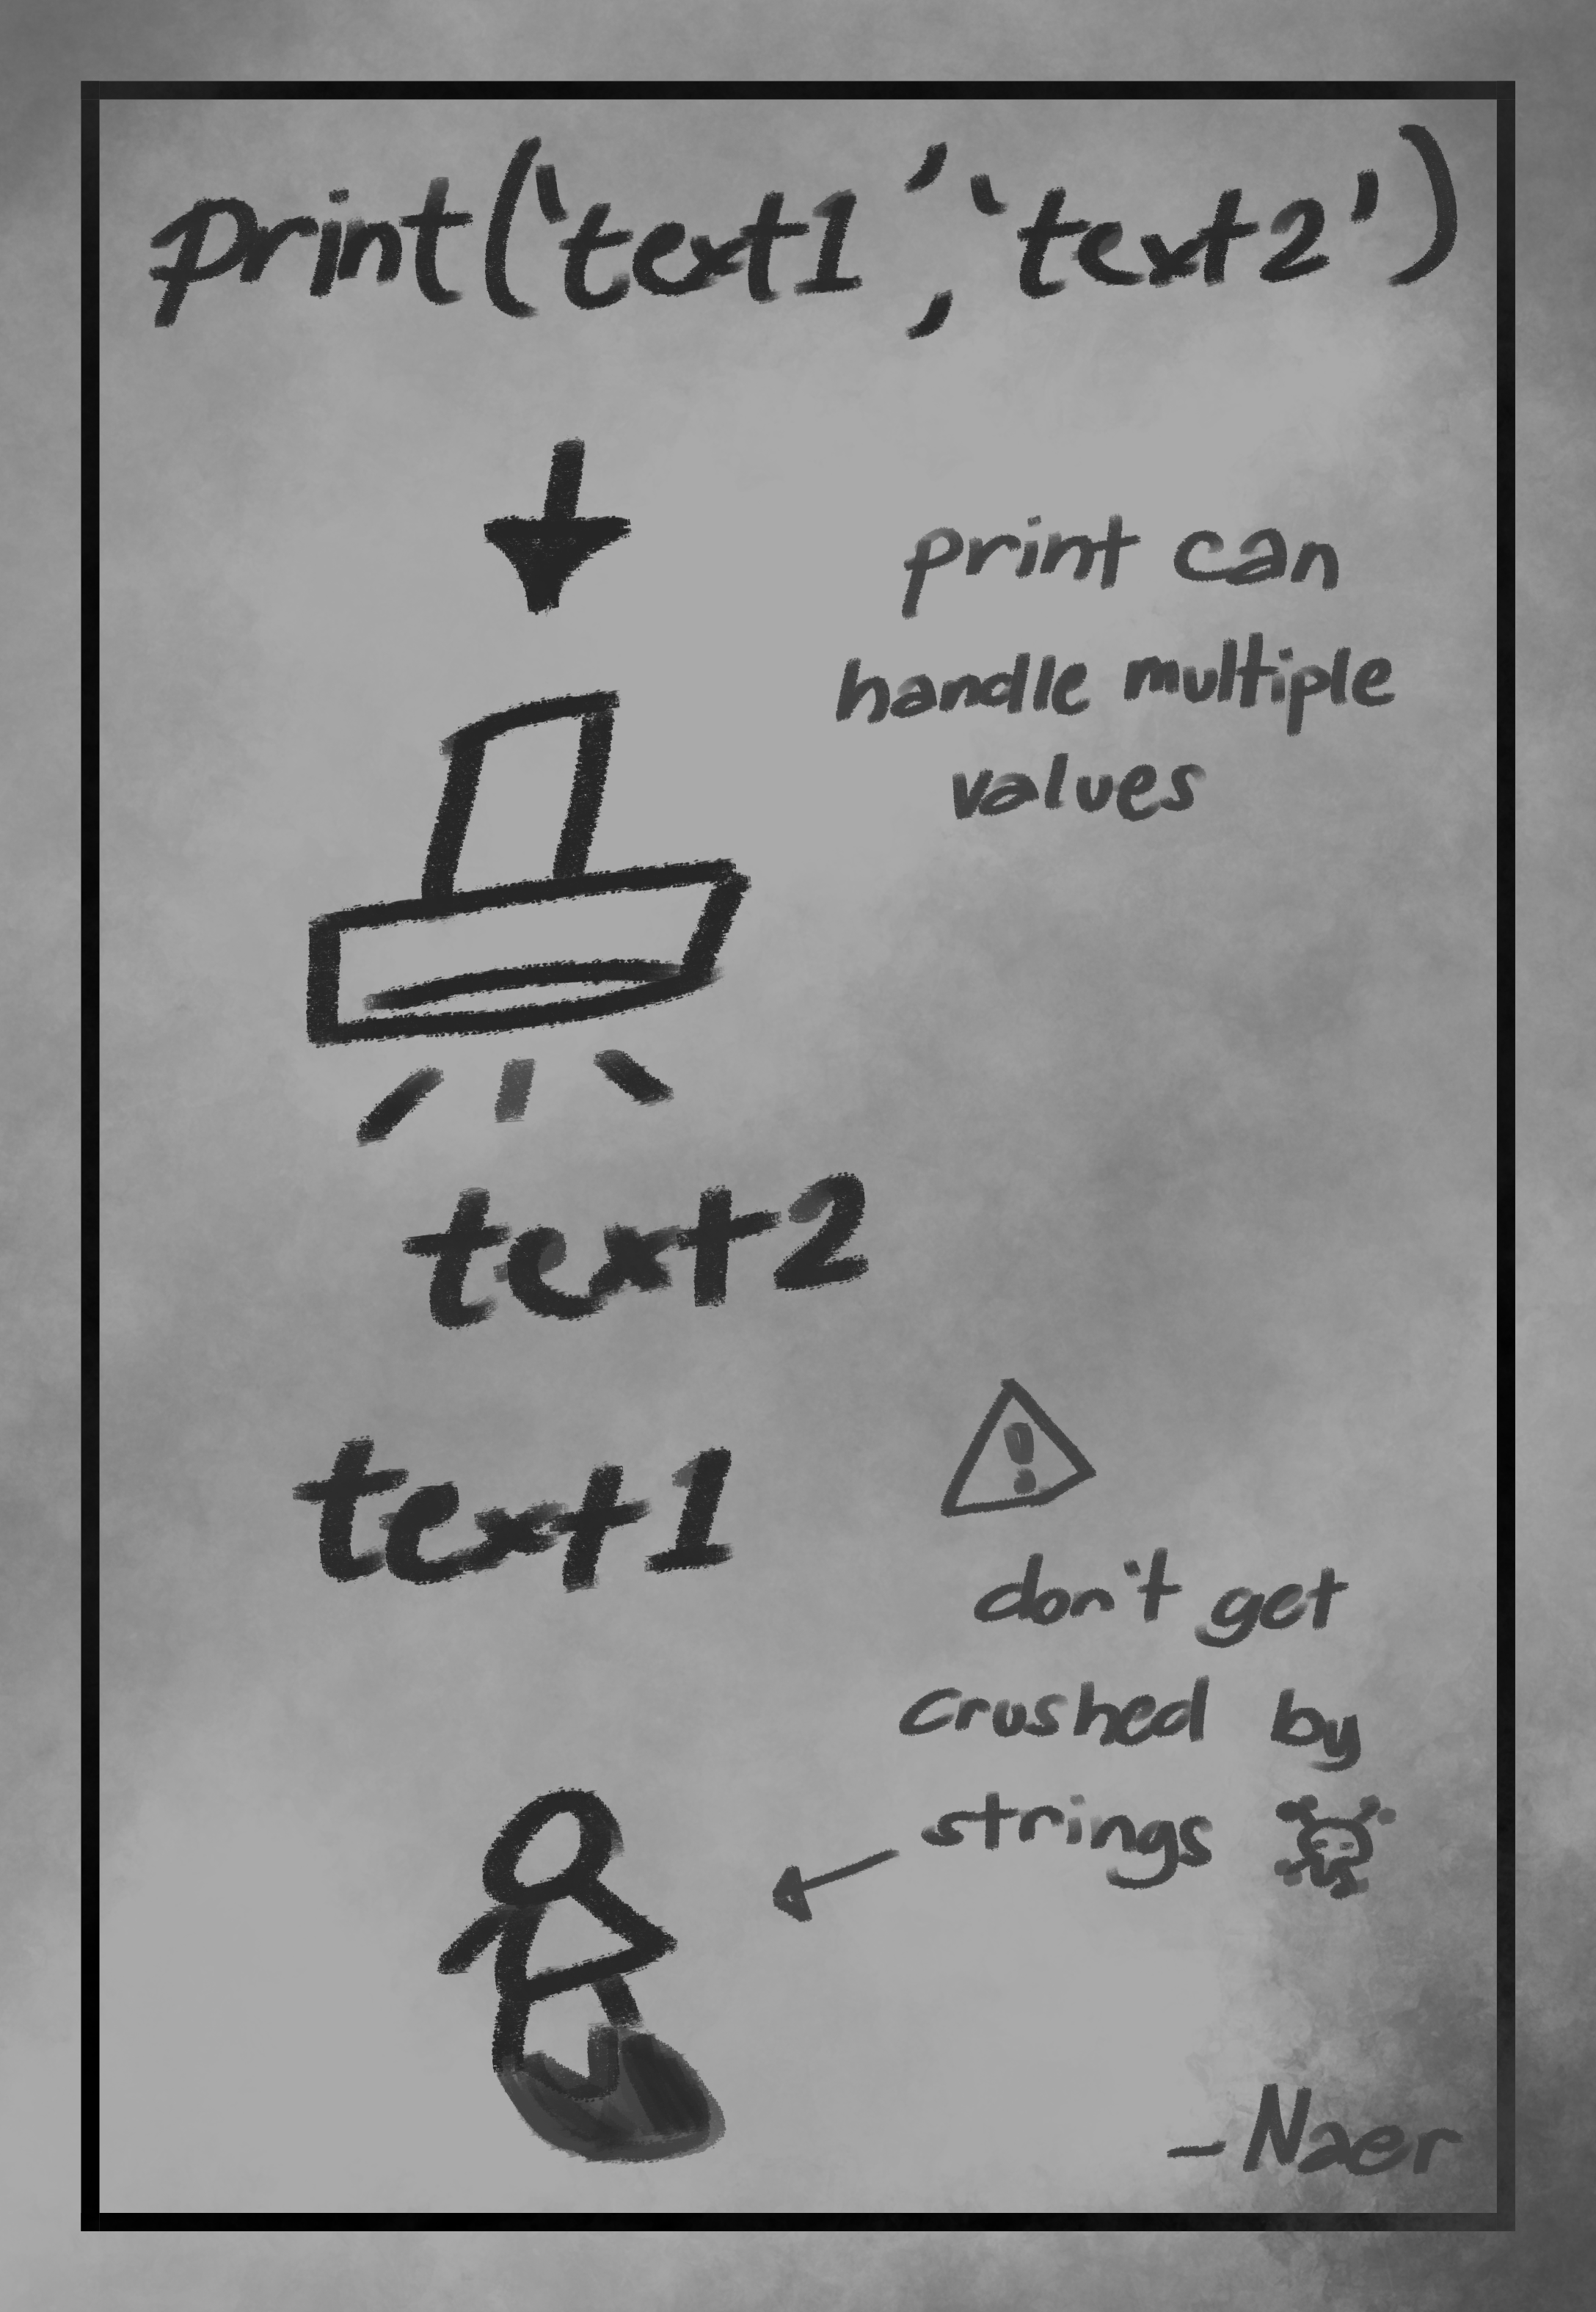 print('text1', 'text2')
print can
handle multiple
values
text2
text1
!
don't get
crushed by
strings
- Naer